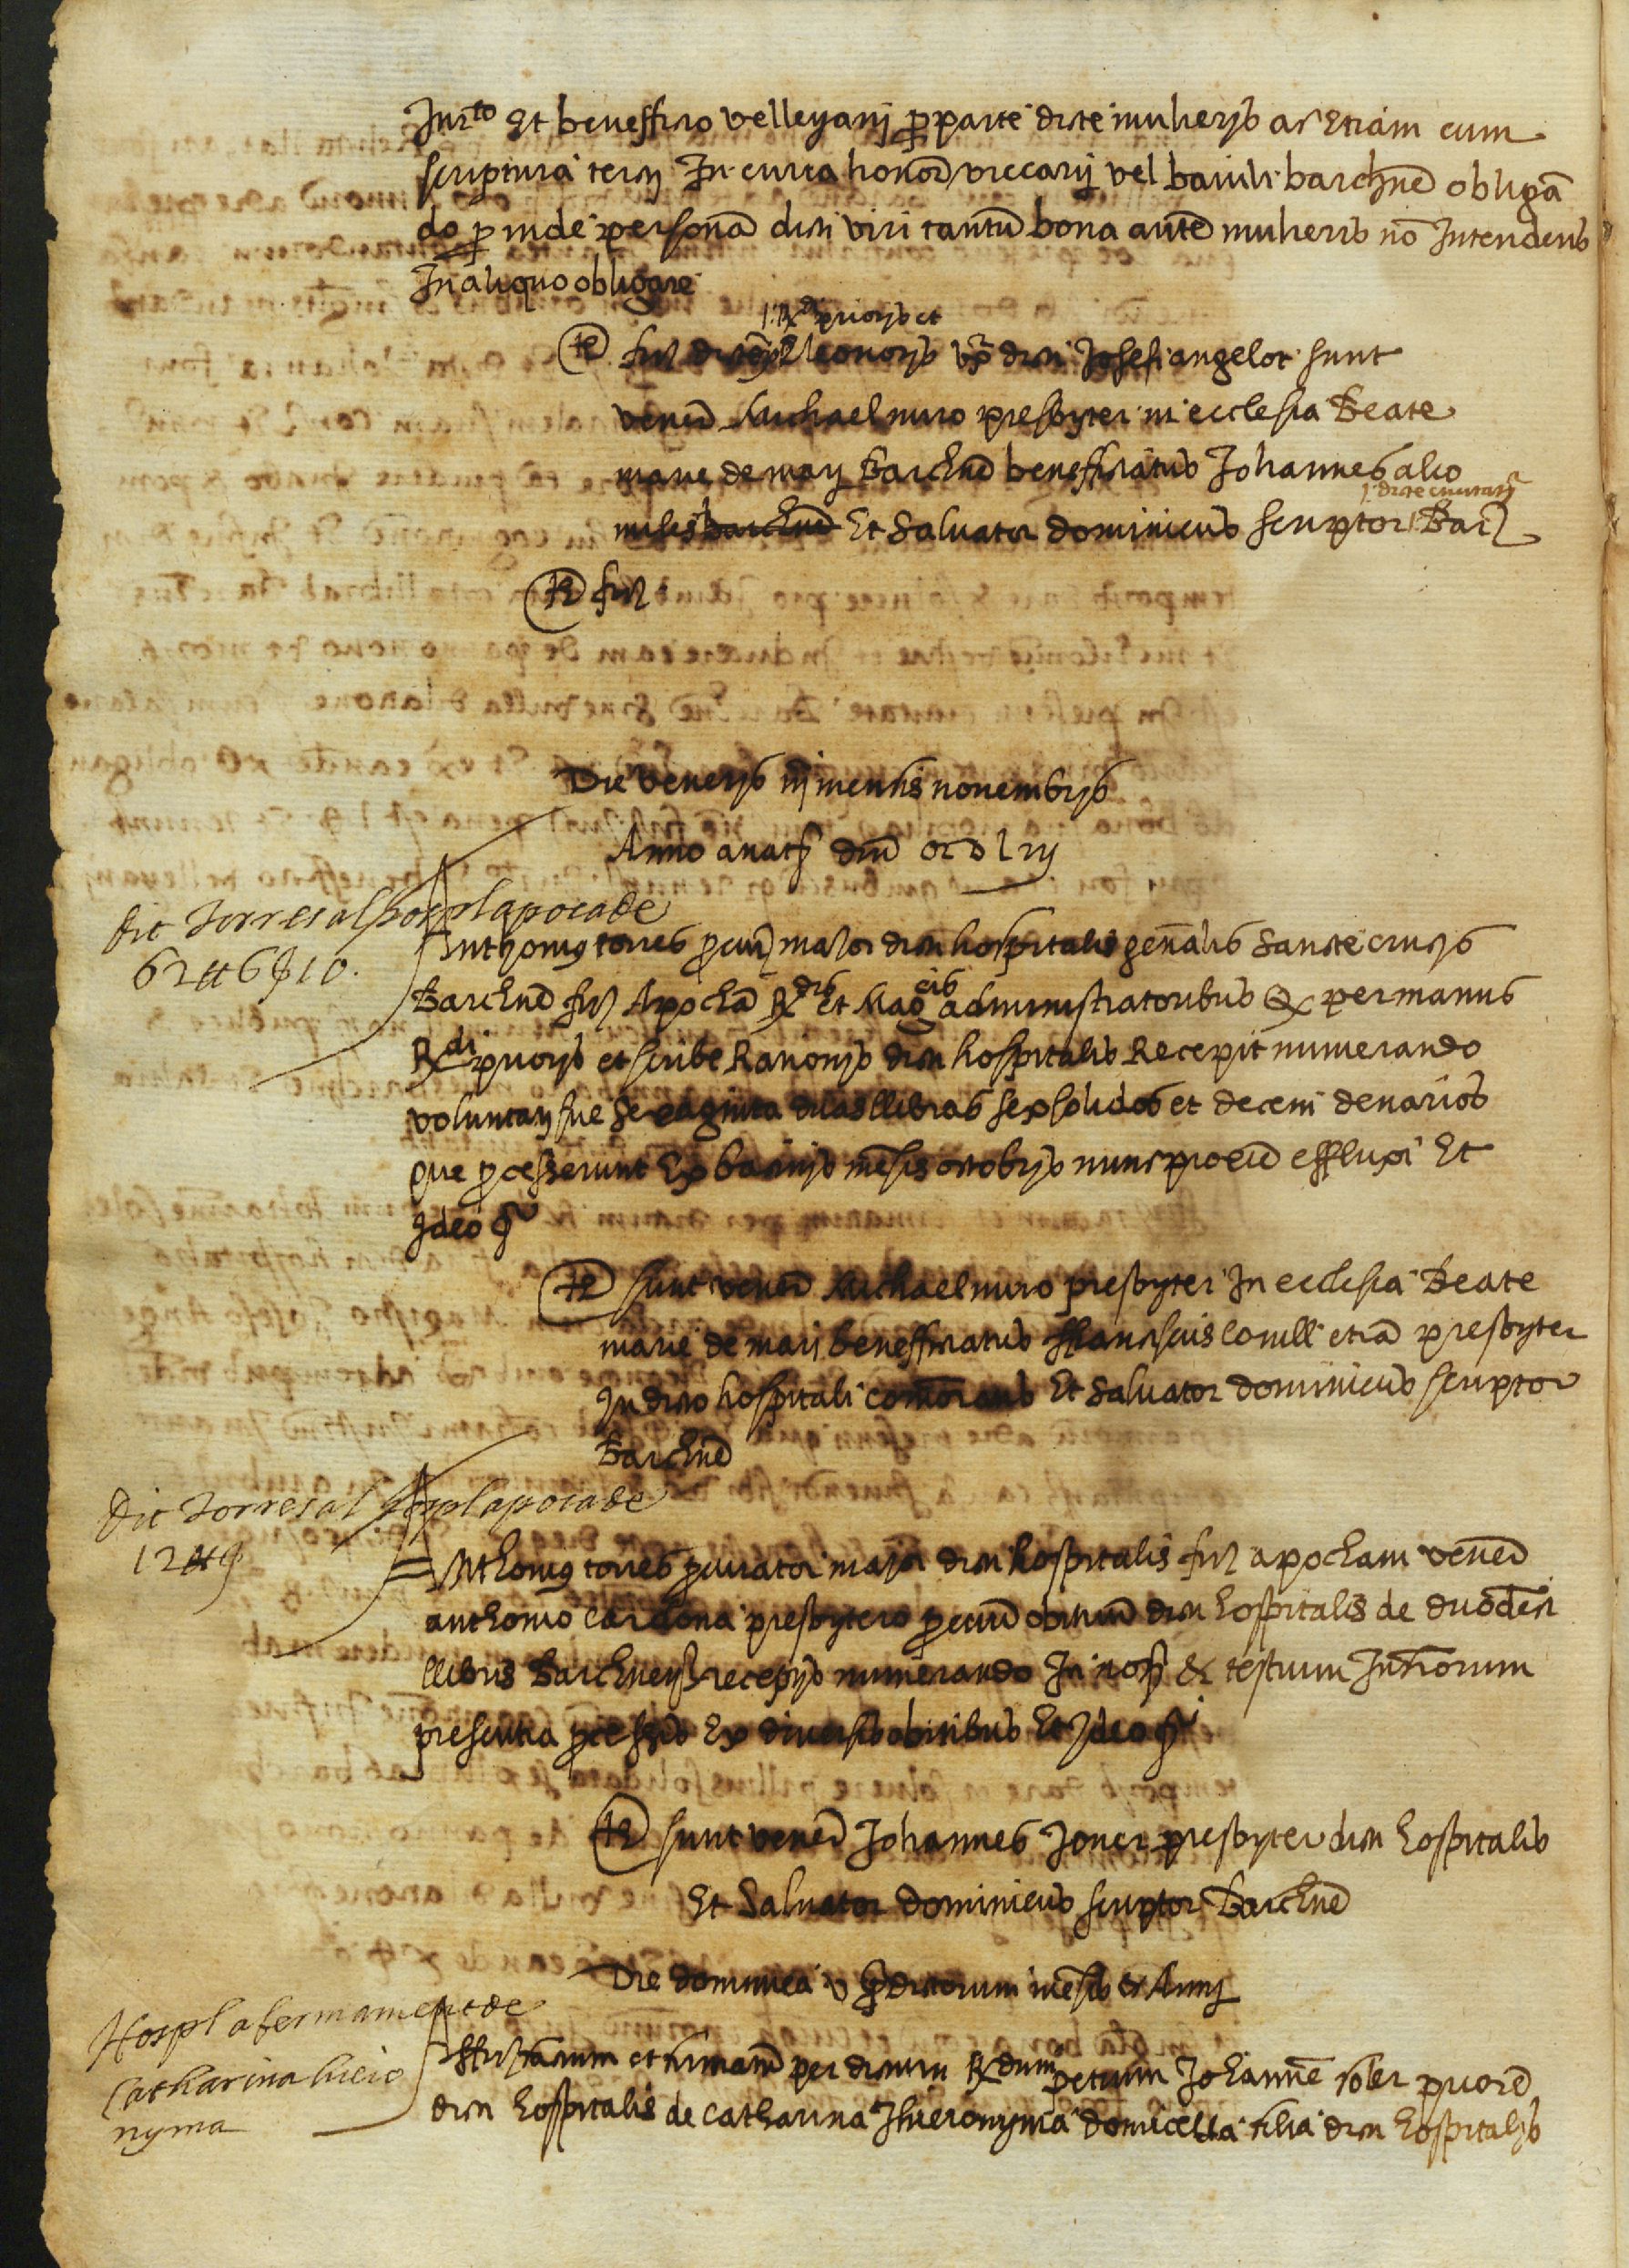 Jur.to Et beneffitio velleyanj p parte dicte mulierjs ac Etiam cum
scriptura tercij In curia honor vicarij vel baiuli barchne obligā
do p inde personā dicti viri tantū bona autē mulieris nō Intendens
In aliquo obligare
j. Rdi prioris et
te firē dicte Eleonorjs vx dicti Josefi angelot sunt
venerē Michael muro presbyter in ecclesia Beate
marie de marj Barchne beneffitiatus Johannes alco
j. dicte ciuitatis
miles barchne Et Saluator dominicus scriptor Barē
te firē
Die venerjs iij mensis novembrjs
Anno a natē dnī MDLxij
dit Torres al hospl apoca de
62 ℔ 6 ſ 10.
Anthonius torres pcurē maior dicti hospitalis genālis Sancte crucjs
Barchne firē Apochā Rdis et Magcis administratoribus Q per manus
Rdi priorjs et scribe Rationjs dicti hospitalis Recepit numerando
voluntarij sue Sexaginta duas llibras sex solidos et decem denarios
que pcesserunt Ex bacinjs mēsis octobrjs nunc proxiē effluxi Et
Ideo &
te sunt venerē Michael muro presbyter In ecclesia Beate
marie de marj beneffitiatus ffranciscus Conill etiā presbyter
In dicto hospitali comorans Et Saluator dominicus scriptor
Barchne
Dit Torres al hospl apoca de
12 ℔ ſ
Anthonius torres pcurator maior dicti hospitalis firē apocham venerē
anthonio Cardona presbytero pcurē obituū dicti hospitalis de duodeci
llibris Barchnensē receptjs numerando In nosē & testium Infrorum
presentia pcessis Ex diversis obitibus Et Ideo &
te sunt venerē Johannes Joner presbyter dicti hospitalis
Et Saluator dominicus scriptor Barchne
Die dominica v pdictorum mēsis & Annj
Hospl afermament de
Catharina hiero
nyma
Affirmatum et firmatū per dictum Rdum petrum Johannē soler priorē
dicti hospitalis de Catharina Jhieronyma domicella filia dicti hospitaljs